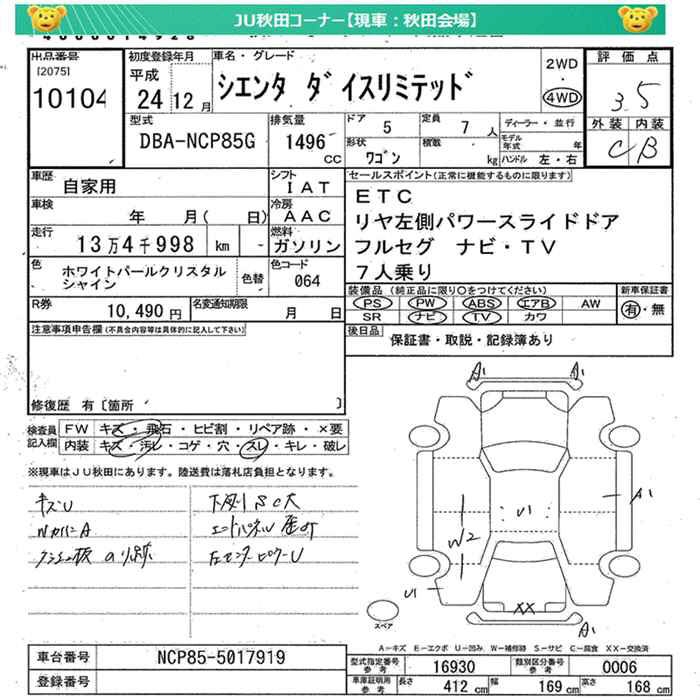 JU秋田コーナー【現車：秋田会場】
出品番号
[2075]
10104
初度登録年月
平成
24年12月
車名・グレード
シエンタ ダイスリミテッド
2WD
・
4WD
評価点
3.5
外装 内装
C B
型式
DBA-NCP85G
排気量
1496
CC
ドア 5
定員 7 人
ディーラー・並行
形状 ワゴン
積載 kg
モデル年式 年
ハンドル 左・右
車歴
自家用
シフト
IAT
車検
年 月( 日)
冷房
AAC
走行
13万4千998 km
燃料
ガソリン
色
ホワイトパールクリスタル
シャイン
色替
色コード
064
R券
10,490円
名変通知期限
月 日
セールスポイント(正常に機能するものに限ります)
ETC
リヤ左側パワースライドドア
フルセグ ナビ・TV
7人乗り
装備品(純正品に限り○をつけてください)
PS PW ABS エアB AW
SR ナビ TV カワ
新車保証書
有・無
後日品
保証書・取説・記録簿あり
注意事項申告欄(不具合内容等は具体的に記入して下さい)
修復歴 有〔箇所 〕
検査員
記入欄
FW キズ・飛石・ヒビ割・リペア跡・×要
内装 キズ・汚レ・コゲ・穴・スレ・キレ・破レ
※現車はJU秋田にあります。陸送費は落札店負担となります。
キズU
下廻りSC大
A1 A1
U1
A1
W2
U1
XX
A1
スペア
A－キズ E－エクボ U－凹み W－補修跡 S－サビ C－腐食 XX－交換済
車台番号
NCP85-5017919
登録番号
型式指定番号
参考
16930
類別区分番号
参考
0006
車庫証明用
参考
長さ 412 cm
幅 169 cm
高さ 168 cm